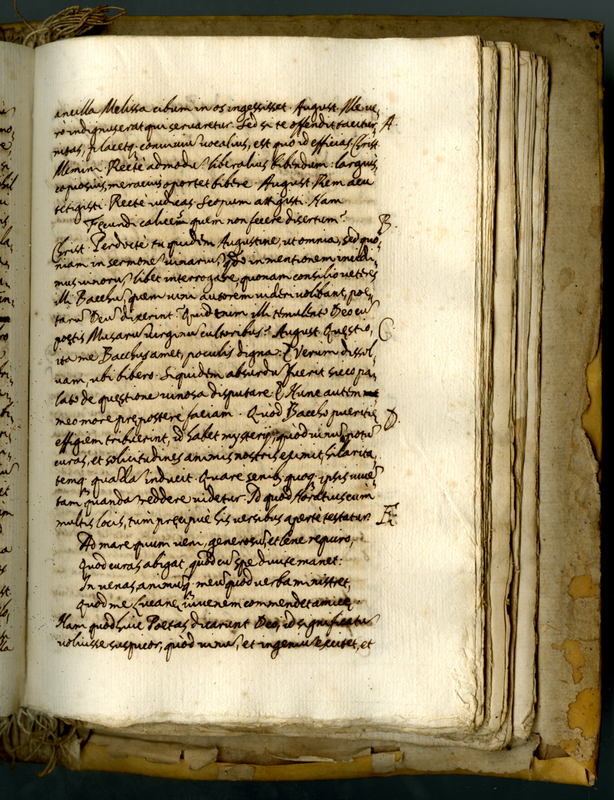 ancilla Melissa cibum in os ingessisset. August. Me ue,
ro indignus erat qui seruaretur. Sed si te offendit tacitur, A.
nitas, placetq; conuiuiu uocalius, est quo id efficias Christ.
Memini. Recte admodu liberalius bibendum: largius,
copiosius, meracius oportet bibere. August. Rem acu
tetigisti. Recte iudicas. Scopum attigisti. Nam
Fecundi calices quem non fecere disertum? B.
Christ. Perdocte tu quidem Augustine, ut omnia, sed quo,
niam in sermone uinarius quo in mentionem incidi,
mus uinorus libet interrogare, quonam consilio ueteres
illi Bacchu quem uini autorem uideri uolebant, poe,
taru Deu dixerint. Quid enim illi temulento Deo cu
poetis Musaru uirginu cultoribus? August. Questio, C
ita me Bacchus amet, poculis digna. Verum dissol,
uam, ubi bibero. Siquidem absurdu fuerit sicco pa,
lato de questione uinosa disputare. Hunc autem
meo more prepostere faciam. Quod Baccho pueritis D.
effigiem tribuerint, id habet mysterij, quod uinus potu
curas, et solicitudines animis nostris eximit, hilarita,
temq; quanda inducit. Quare senib, quoq; ipsis iuue,
tam quanda reddere uidetur. Id quod Horatius cum
multis locis, tum precipue his uersibus aperte testatur. E.
Ad mare quum ueni, generosu, et lene requiro,
Quod curas abigat, quod cu spe diuite manet:
In uenas, animuq; meu, quod uerba ministret,
Quod me Lucane iuuenem commendet amice.
Nam quod huic Poetas dicarunt Deo, id significatu
uoluisse suspicor, quod uinu, et ingeniu excitet, et